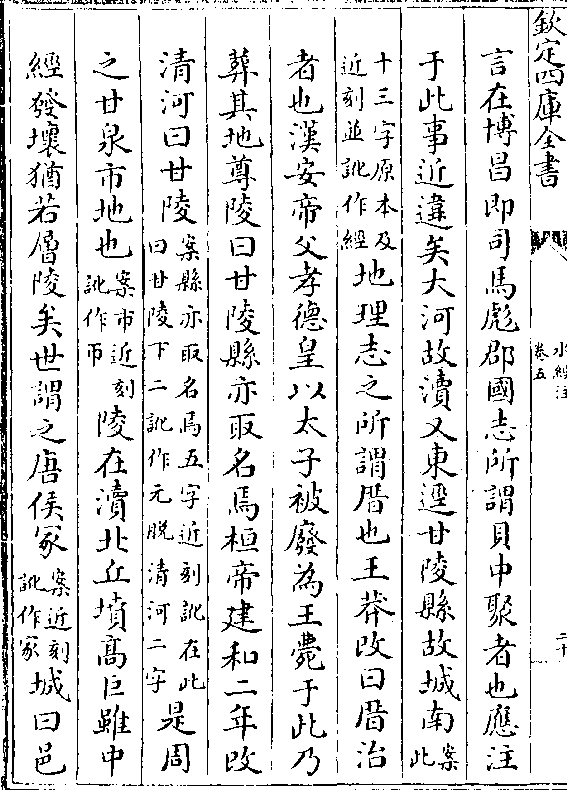 欽定四庫全書
水經注
卷五
二十
言在博昌即司馬彪郡國志所謂貝中聚者也應注
于此事近違矣大河故瀆又東逕甘陵縣故城南案此
十三字原本及近刻並訛作經地理志之所謂厝也王莽改曰厝治
者也漢安帝父孝德皇以太子被廢為王薨于此乃
葬其地尊陵曰甘陵縣亦取名焉桓帝建和二年改
清河曰甘陵案縣亦取名焉五字近刻訛在此曰甘陵下二訛作元脫清河二字是周
之甘泉市地也案市近刻訛作帀陵在瀆北丘墳髙巨雖中
經發壞猶若層陵矣世謂之唐侯冢案近刻訛作家城曰邑